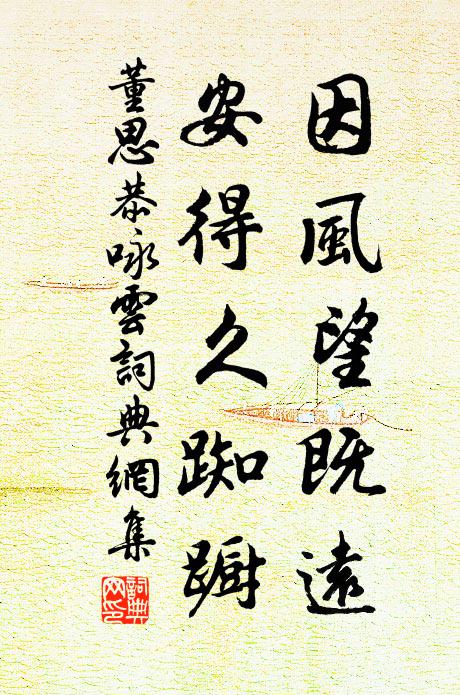 因風望既遠
安得久踟躕
董思恭咏雲詞典網集
詞典網印